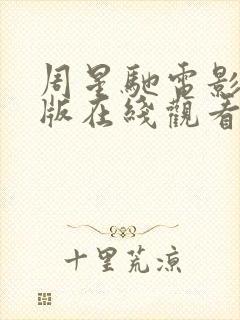 周星馳電影
版在綫觀看
十里荒涼